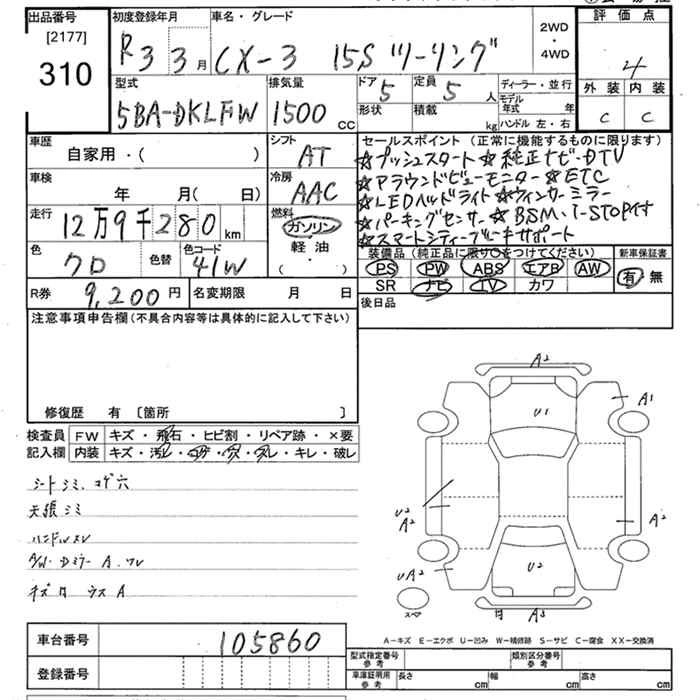 出品番号 初度登録年月 車名・グレード 2WD ・ 4WD 評価点
[2177]
310 R3 3月 CX-3 15S ツーリング 4
型式 排気量 ドア 5 定員 5人 ディーラー・並行 外装 内装
5BA-DKLFW 1500cc 形状 積載 kg モデル年式 年 C C
ハンドル 左・右
車歴 シフト セールスポイント (正常に機能するものに限ります)
自家用・( ) AT ☆プッシュスタート☆純正ナビ・DTV
車検 冷房 ☆アラウンドビューモニター☆ETC
年 月(日) AAC ☆LEDヘッドライト☆ウィンカーミラー
走行 燃料 ☆パーキングセンサー☆BSM・i-STOP
12万9千280km ガソリン ☆スマートシティーブレーキサポート
色 色替 色コード 軽油 装備品 (純正品に限り○をつけてください) 新車保証書
クロ 41W (・) PS PW ABS エアB AW 有 無
SR ナビ TV カワ
R券 9,200円 名変期限 月 日 後日品
注意事項申告欄(不具合内容等は具体的に記入して下さい)
修復歴 有 〔箇所 〕
検査員 FW キズ・飛石・ヒビ割・リペア跡・×要
記入欄 内装 キズ・汚レ・コゲ・穴・スレ・キレ・破レ
シートシミ、コゲ穴
天張シミ
ハンドルスレ
A/W・Dミラー A、ワレ
キズ ウスA
A2
A1
U1
U2
A2
A2
UA2
U2
スペア
A3
A-キズ E-エクボ U-凹み W-補修跡 S-サビ C-腐食 XX-交換済
車台番号 105860
型式指定番号 参考 類別区分番号 参考
登録番号 車庫証明用 参考 長さ cm 幅 cm 高さ cm